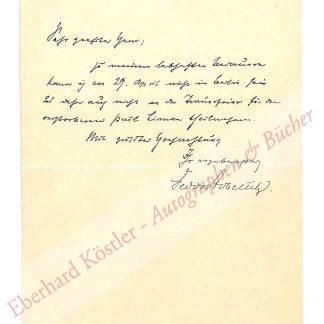 Sehr geehrter Herr;
zu meinem lebhaften Bedauern
kann ich am 29. April nicht in Berlin sein
und daher auch nicht an der Trauerfeier für den
verstorbenen Paul Liman theilnehmen.
Mit größter Hochachtung
Ihr ergebenster
Eberhard Köstler - Autographen & Bücher